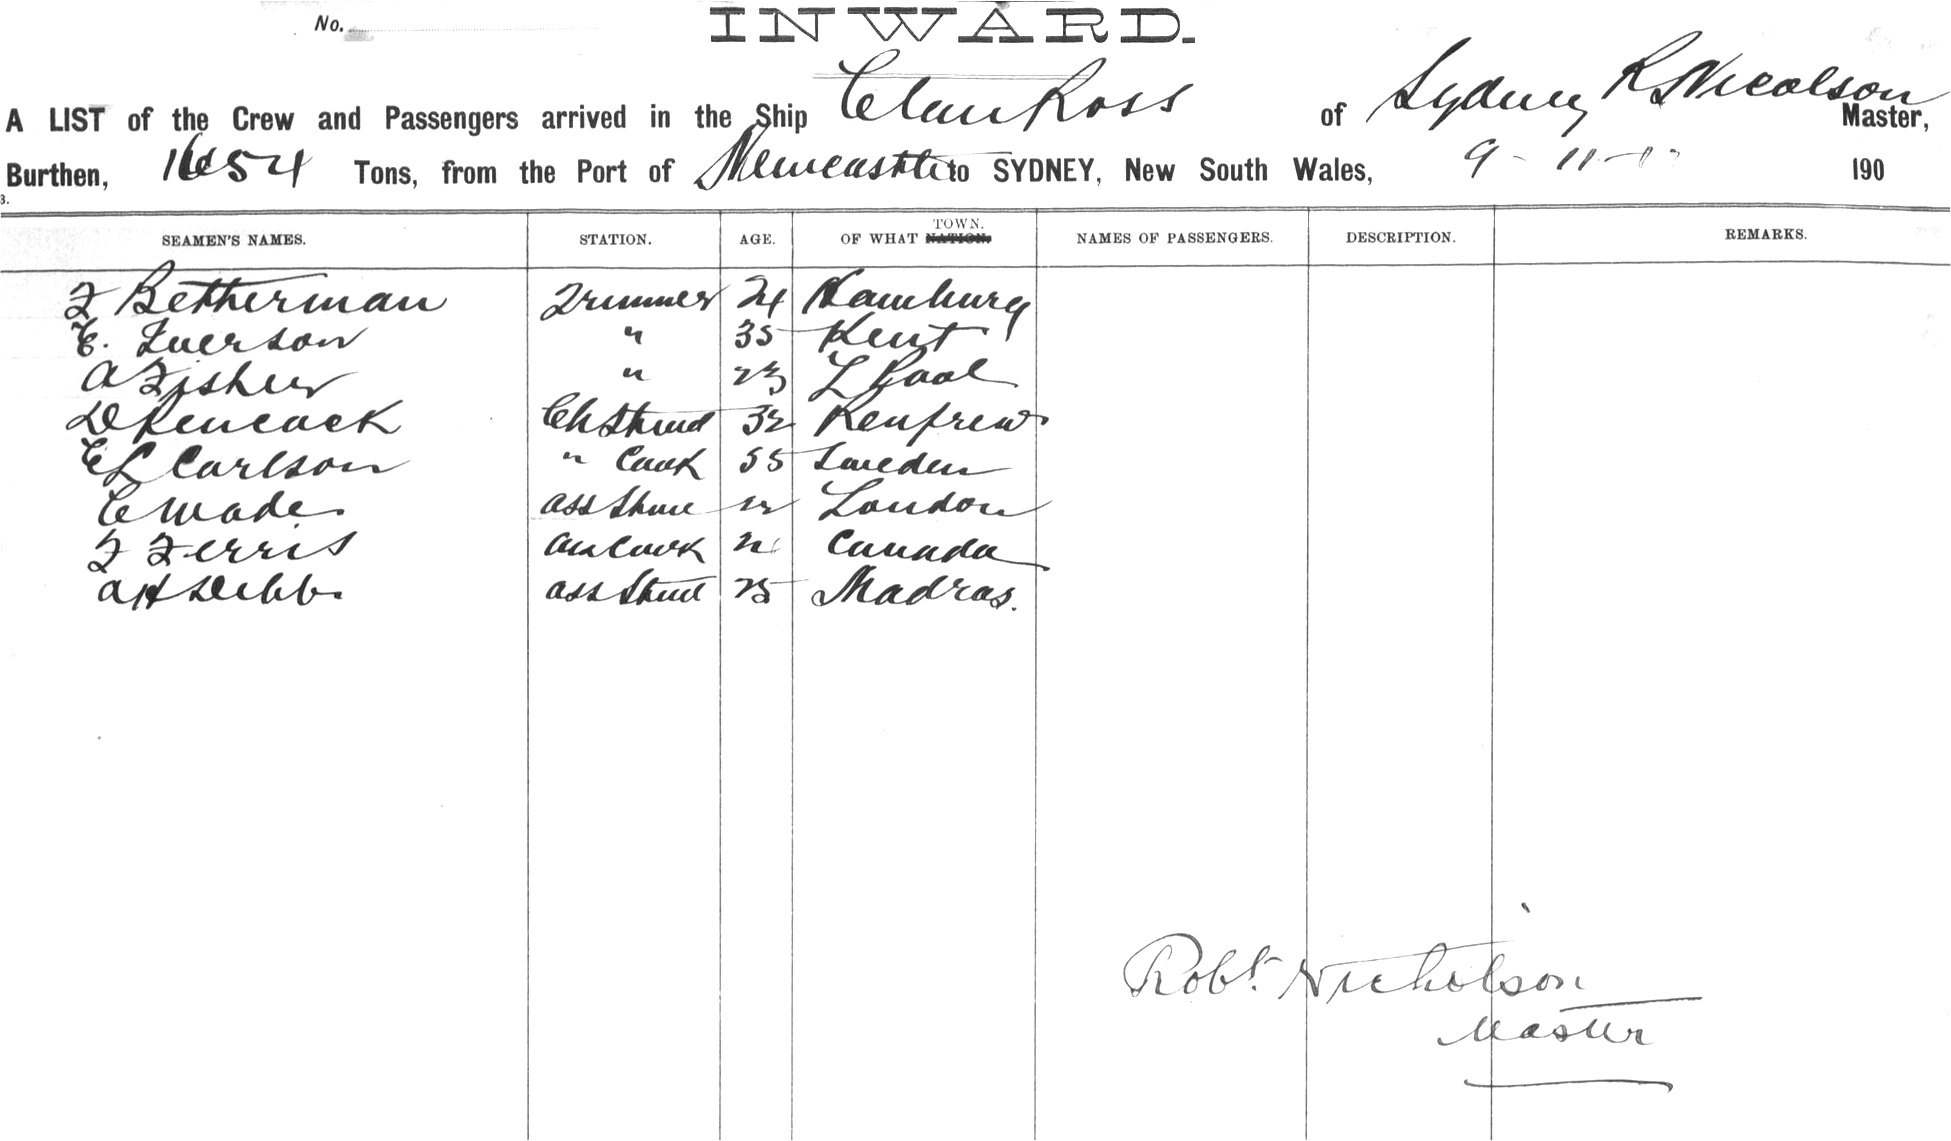 No.
INWARD.
A LIST of the Crew and Passengers arrived in the Ship Clan Ross of Sydney R Nicolson Master,
Burthen, 1654 Tons, from the Port of Newcastle to SYDNEY, New South Wales, 9 - 11 - 190
3.
SEAMEN'S NAMES. STATION. AGE. OF WHAT NATION. TOWN. NAMES OF PASSENGERS. DESCRIPTION. REMARKS.
F Betherman Trimmer 24 Hamburg
E. Iverson " 35 Kent
A Fisher " 23 L Pool
D Peacock Ch Stwd 32 Renfrew
E L Carlson " Cook 55 Sweden
C Wade Ass London
F Ferris Ass Cook Canada
A H Debb Ass Stwd 25 Madras.
Robt. Nicholson
Master